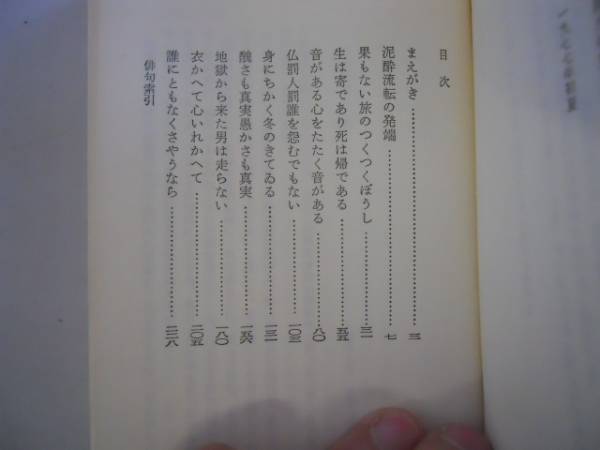 目次
まえがき……三
泥酔流転の発端……七
果もない旅のつくつくぼうし……三一
生は寄であり死は帰である……五五
音がある心をたたく音がある……八〇
仏罰人罰誰を怨むでもない……一〇三
身にちかく冬のきてゐる……一三一
醜さも真実愚かさも真実……一五六
地獄から来た男は走らない……一八〇
衣かへて心いれかへて……二〇五
誰にともなくさやうなら……二二八
俳句索引